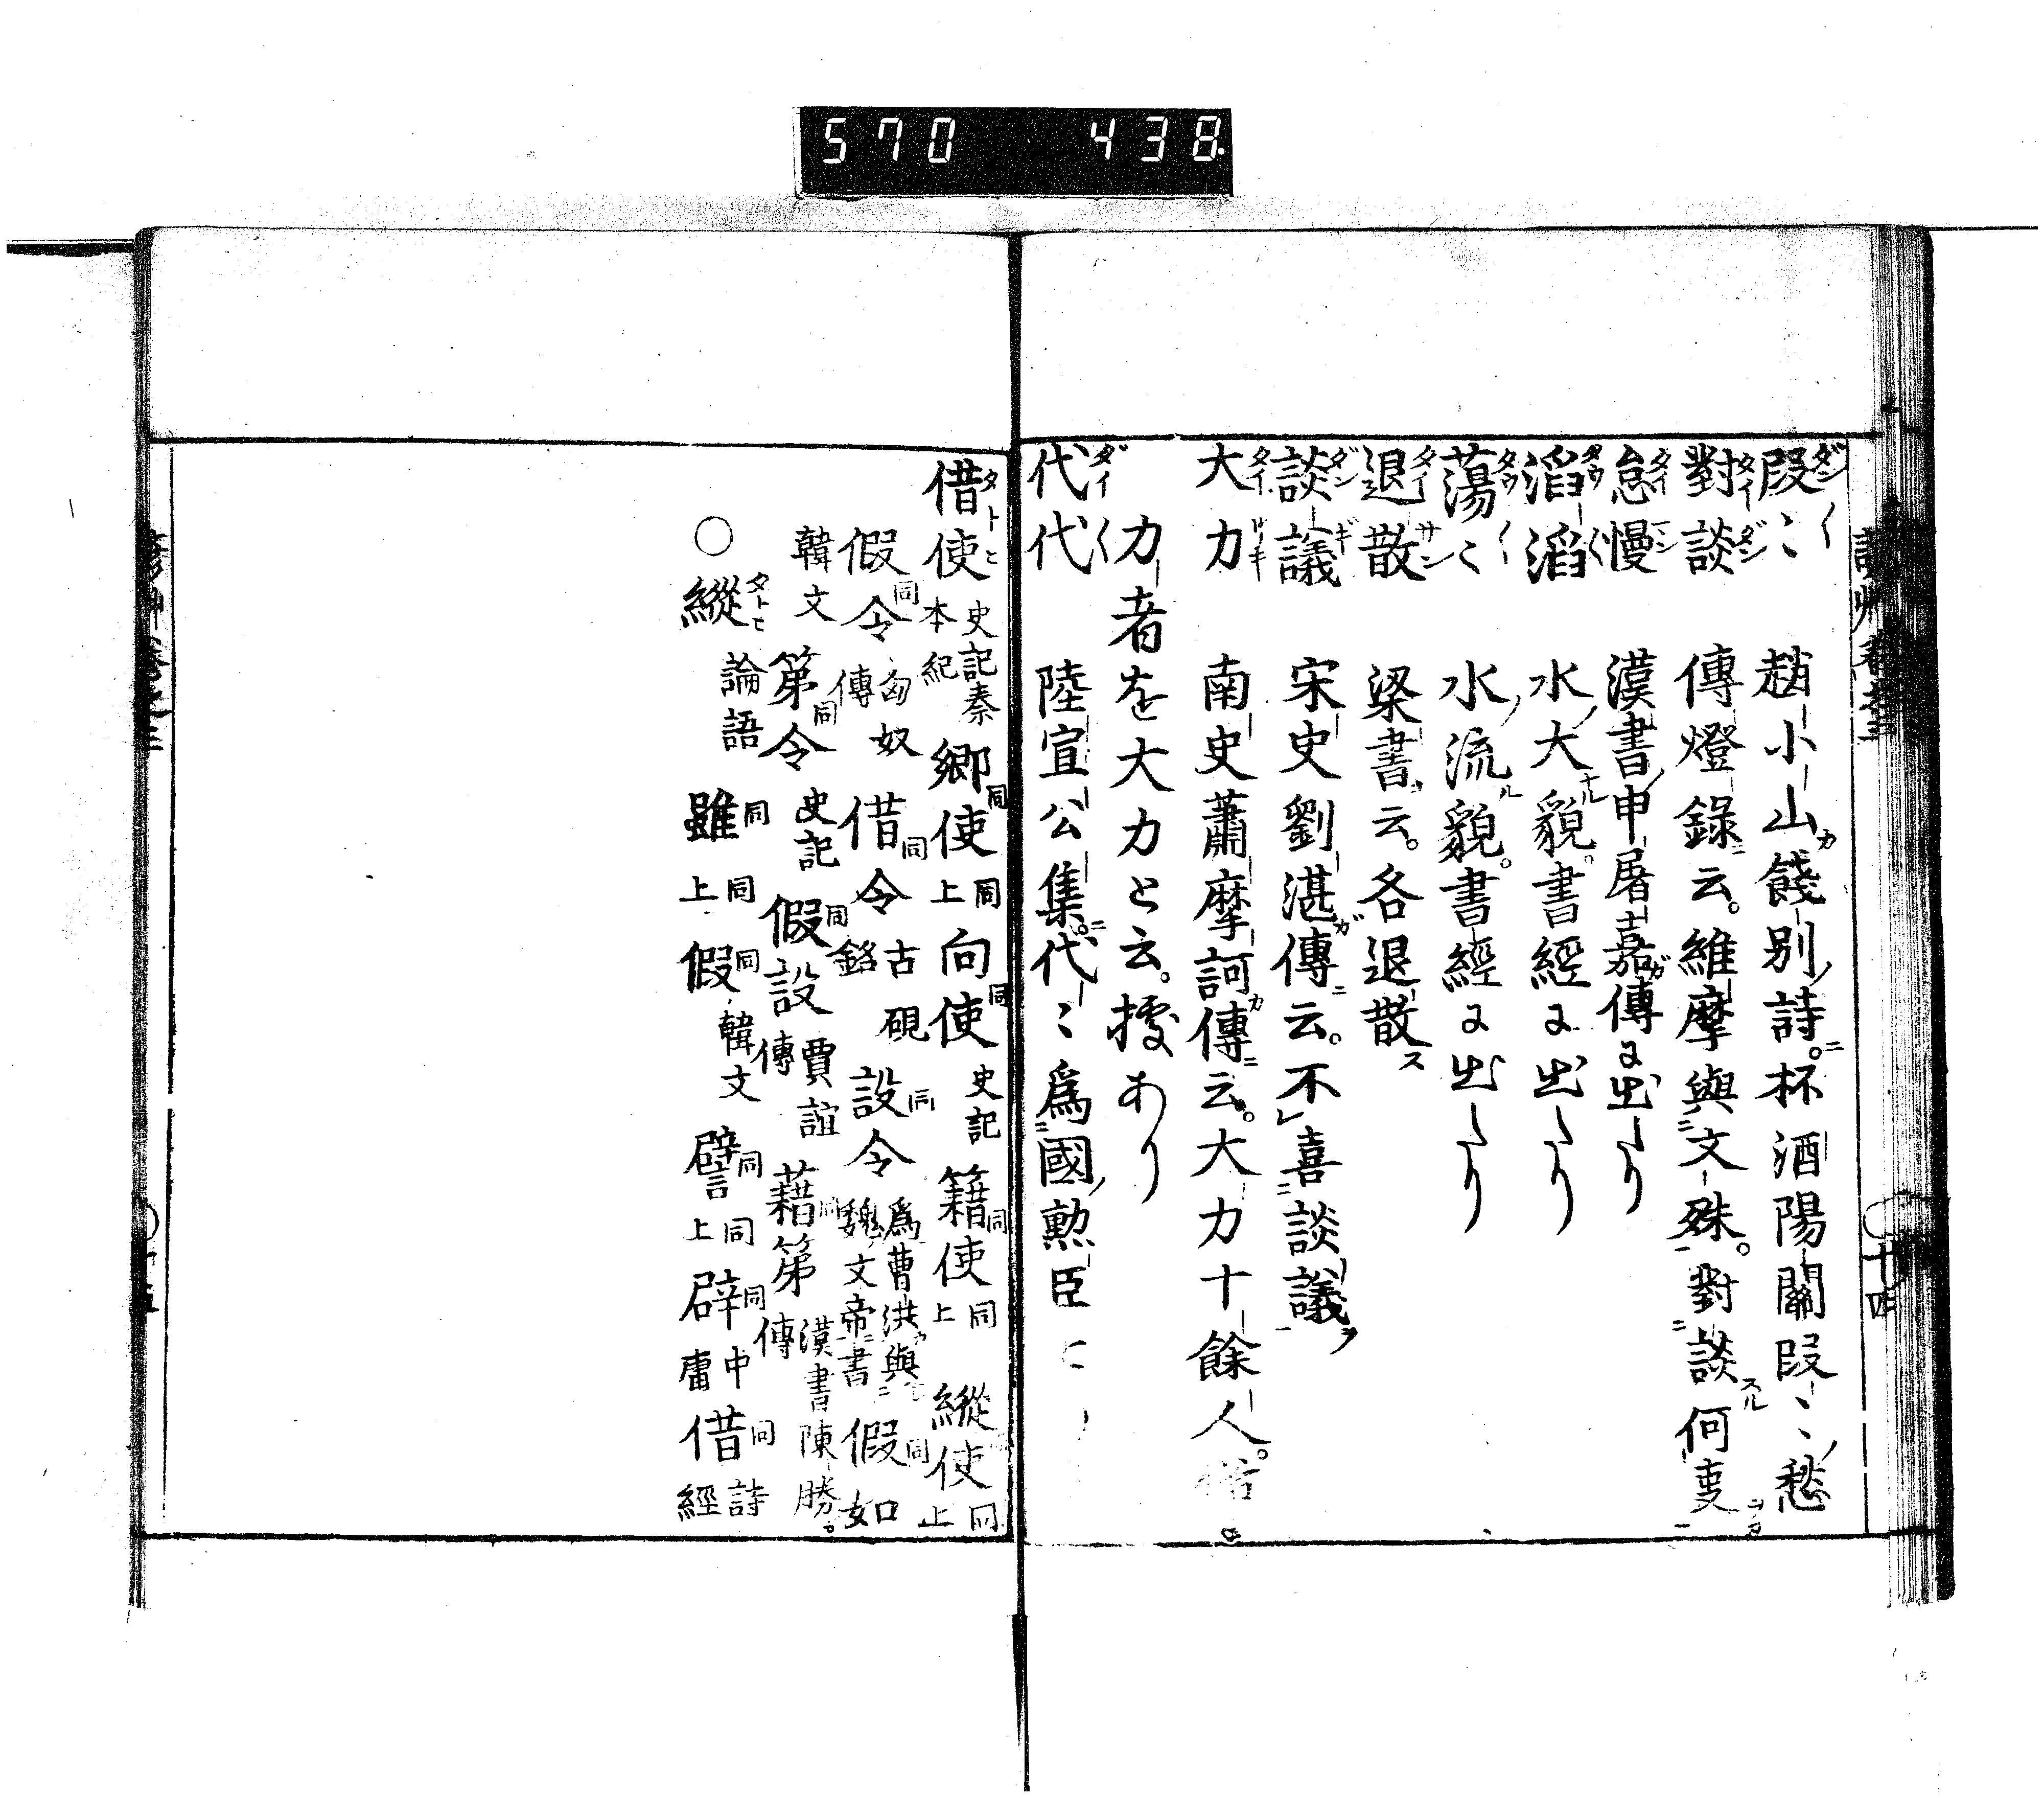 570 438
段〻 趙小山餞別詩。杯酒陽關段〻愁
對談 傳燈錄云。維摩與文殊。對談何叓
怠慢 漢書申屠嘉傳に出たり
滔滔 水大貌。書經に出たり
蕩〻 水流貌。書經に出たり
退散 梁書云。各退散ス
談議 宋史劉湛傳云。不喜談議
大力 南史蕭摩訶傳云。大力十餘人。
力者を大力と云。據あり
代代 陸宣公集。代〻爲國勲臣
十四
借使 史記秦本紀 鄉使 同上 向使 史記 籍使 同上 縱使 同上
假令 匈奴傳 借令 古硯銘 設令 爲曹洪與魏文帝書 假如
韓文 第令 史記 假設 賈誼傳 藉第 漢書陳勝傳
○縱 論語 雖 同上 假 韓文 譬 同上 辟 中庸 借 詩經